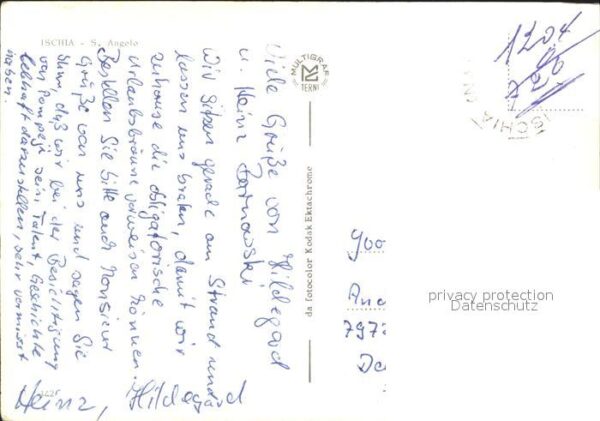 ISCHIA - S. Angelo
Viele Grüße von Hildegard
u. Heinz
Wir sitzen gerade am Strand und
lassen uns braten, damit wir
zuhause die obligatorische
Urlaubsbräune vorweisen können.
Bestellen Sie bitte auch Monsieur
Grüße von uns und sagen Sie
ihm, daß wir bei der Besichtigung
von Pompeji sein Talent, Geschichte
lebhaft darzustellen, sehr vermisst
haben.
Heinz, Hildegard
MULTIGRAF
TERNI
da fotocolor Kodak Ektachrome
1204
726
ISCHIA
privacy protection
Datenschutz